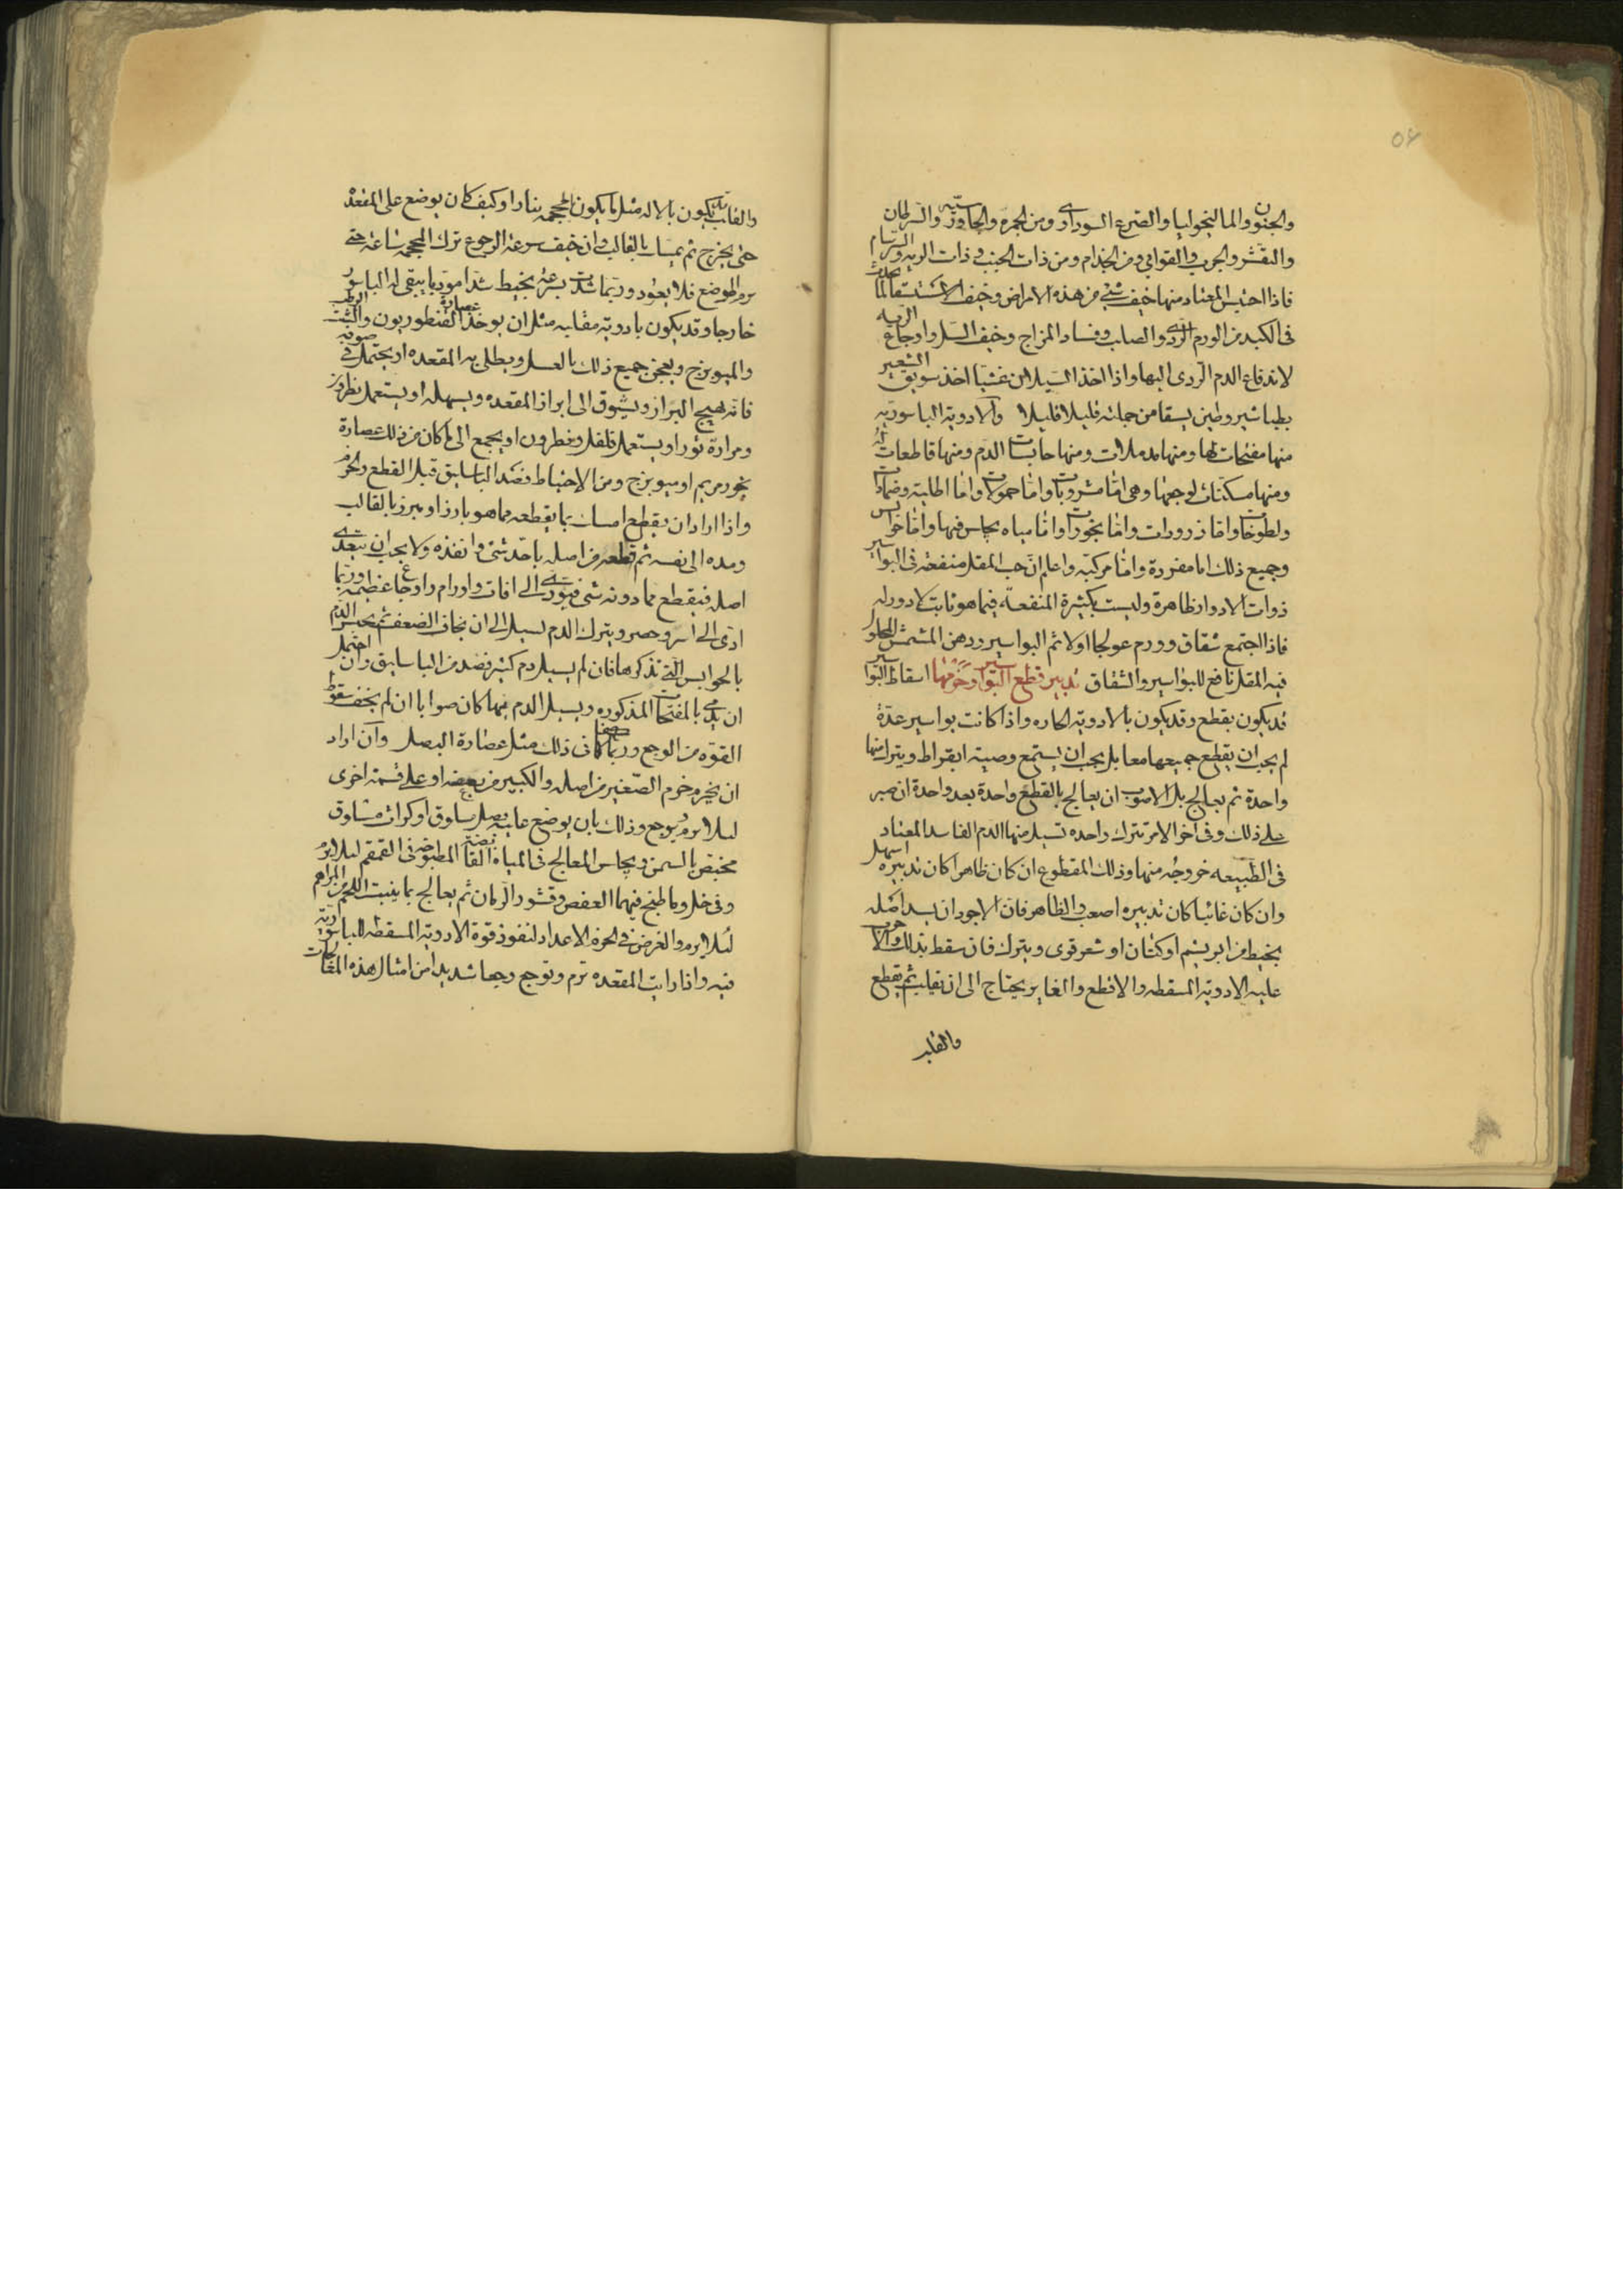 ٥٦
والجنون والمالنخوليا والصرع السوداوى ومن الجمرة والجاورسيه والسرطان
والتقشر والجرب والقوابى ومن الجذام ومن ذات الجنب وذات الريه والسرسام
فاذا احتبس المعتاد منها خيف شئ من هذه الامراض وخيف الاستسقا لما يحدث
فى الكبد من الورم الردى والصلب وفساد المزاج وخيف السل واوجاع الريه
لاندفاع الدم الردى اليها واذا اخذ السيلان غشيا اخذ سويق الشعير
بطباشير وطين يسقا من جملته قليلا قليلا والادوية الباسوريه
منها مفتحات لها ومنها مدملات ومنها حابسات الدم ومنها قاطعات له
ومنها مسكنات لوجعها وهى اما مشروبات واما حمولات واما اطلية وضمادات
ولطوخات واما ذرورات واما بخورات واما مياه يجلس فيها واما حوابس
وجميع ذلك اما مفردة واما مركبه واعلم ان حب المقل منفعته فى البواسير
ذوات الادوار ظاهرة وليست بكثيرة المنفعة فيما هو ثابت لا دور له
فاذا اجتمع شقاق وورم عولجا اولا ثم البواسير ودهن المشمش المحلول
فيه المقل نافع للبواسير والشقاق تدبير قطع البواسير وخزمها اسقاط البواسير
قد يكون بقطع وقد يكون بالادوية الحاره واذا كانت بواسير عدة
لم يجب ان يقطع جميعها معا بل يجب ان يستمع وصية ابقراط ويترك منها
واحدة ثم يعالج بل الاصوب ان يعالج بالقطع واحدة بعد واحدة ان صبر
على ذلك وفى اخر الامر تترك واحده تسيل منها الدم الفاسد المعتاد
فى الطبيعه خروجه منها وذلك المقطوع ان كان ظاهرا كان تدبيره اسهل
وان كان غائبا كان تدبيره اصعب والظاهر فان الاجود ان يشد اصله
بخيط من ابريشم او كتان او شعر قوى ويترك فان سقط بذلك والا جرب
عليه الادوية المسقطه والا قطع والغاير يحتاج الى ان يقلب ثم يقطع
والقلب
والقلب قد يكون بالاله مثل ما يكون بالمحجمه بنار او كيف كان يوضع على المقعدة
حتى يخرج ثم يمسك بالقالب وان خيف سرعة الرجوع ترك المحجمه ساعة حتى
يرم الموضع فلا يعود وربما شدت بسرعة بخيط شدا موديا يبقى له الباسور
خارجا وقد يكون بادوية مقلبه مثل ان يوخذ عصارة القنطوريون والشب الرطب
والميويزج ويعجن جميع ذلك بالعسل ويطلى به المقعده او يحتمل فى صوفه
فانه يهيج البراز ويشوق الى ابراز المقعده ويسهله او يستعمل نطرون
ومرارة ثور او يستعمل فلفل ونطرون او يجمع الى ما كان من ذلك عصارة
بخور مريم او ميويزج ومن الاحتياط فصد الباسليق قبل القطع والخرم
واذا اراد ان يقطع امسك ما يقطعه مما هو بارز او مبرز بالقالب
ومده الى نفسه ثم قطعه من اصله باحد شئ وانفذه ولا يجب ان يتعدى
اصله فيقطع مما دونه شئ فيودى الى افات واورام واوجاع عظيمه وربما
ادى الى اسر وحصر ويترك الدم يسيل الى ان يخاف الضعف ثم يحبس الدم
بالحوابس التى نذكرها فان لم يسيل دم كثير فصد من الباسليق وان احتمل
ان يدمى بالمفتحات المذكوره ويسيل الدم منها كان صوابا ان لم يخف سقوط
القوه من الوجع وربما كفا فى ذلك مثل عصارة البصل وان اراد
ان يخرم خرم الصغير من اصله والكبير من بعضه او على قسمة اخرى
ليلا يرم ويوجع وذلك بان يوضع عليه بصل مسلوق او كراث مسلوق
مخبص بالسمن ويجلس المعالج فى المياه القابضة المطبوخه فى القمقم ليلا يرم
وفى خل وما طبخ فيهما العفص وقشور الرمان ثم يعالج بما ينبت اللحم من المراهم
ليلا يرم والغرض فى الخرم الاعداد لنفوذ قوة الادوية المسقطه للباسورية
فيه واذا رايت المقعده ترم وتوجع وجعا شديدا من امثال هذه المعالجات